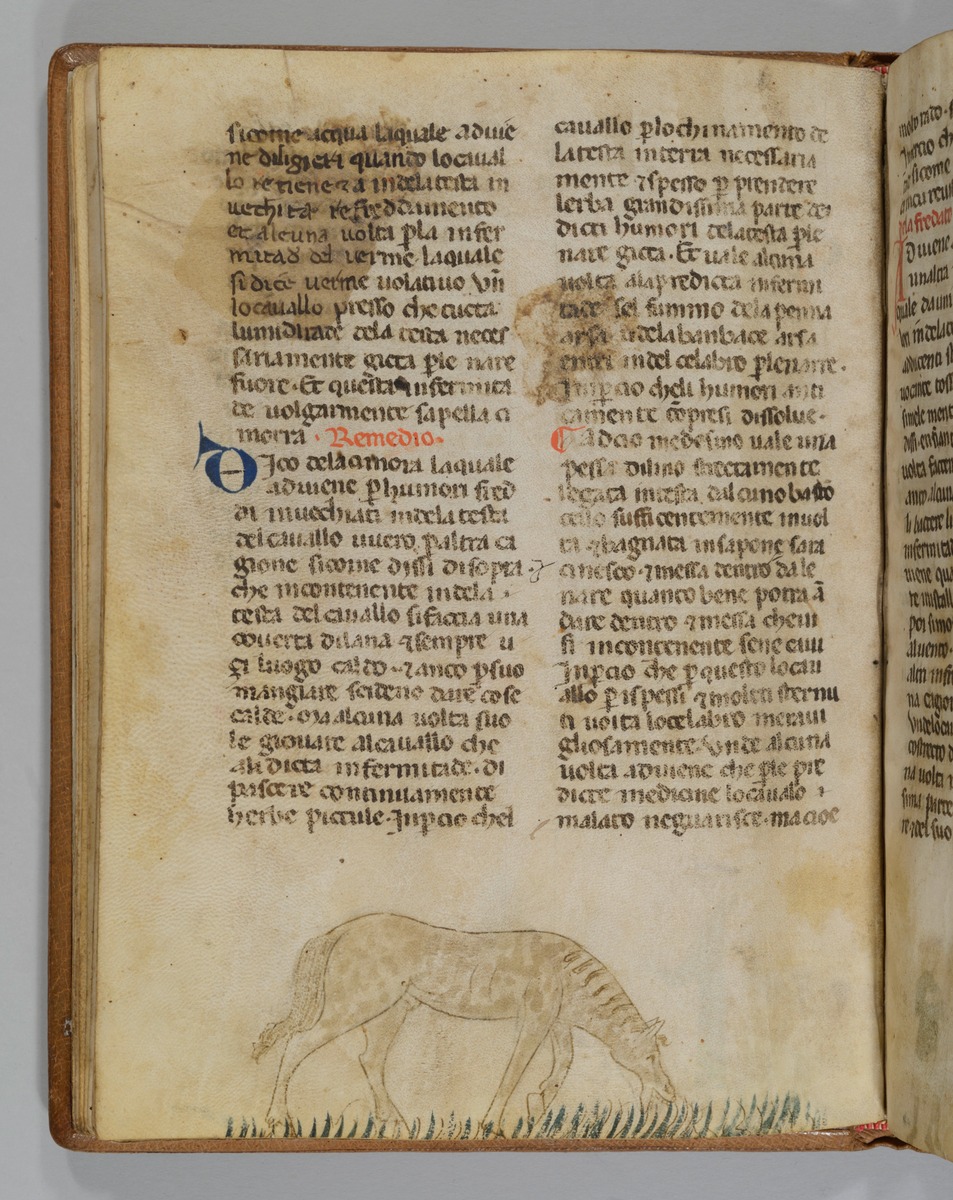 sicome acqua laquale aduie
ne diligieri quando lo caual
lo retiene ⁊ a indela testa in
uechita refreddamento
et alcuna uolta p̲la infer
mitad del uerme laquale
si dice uerme uolatiuo vn̄
lo cauallo presso che tucta
lumiditate dela testa neces
sariamente gicta p̲ le nare
fuore · Et questa infermita
de uolgarmente sapella ci
morra · Remedio ·
Dico dela cimora laquale
aduiene p̲ humori fred
di inuechiati indela testa
del cauallo uuero p̲altra ca
gione sicome dissi di sopra ·
che incontenente indela
testa del cauallo si faccia una
couerta di lana ⁊ sempre u
luogo caldo · ⁊ anco p̲suo
mangiare seideno dare cose
calde · Ma alcuna uolta suo
le giouare al cauallo che
a dicta infermitade · di
pascere continuamente
herbe piccule · Inp̲cio chel
cauallo p̲lo chinamento de
la testa interra necessaria
mente ⁊ spesso p̲ prendere
lerba grandissima parte de
dicti humori dela testa p̲le
nare gicta · Et uale alcuna
uolta ala predicta infermi
tade sel fummo dela penna
arsa dela banbace arsa
entri indel celabro p̲le narre ·
Inp̲cio cheli humori anti
camente cōpresi dissolue ·
Ad cio medesmo uale una
pessa di lino strectamente
legata intesta dal cuno basto
cello sufficentemente inuol
ta ⁊ bagnata in sapone sara
cinesco · ⁊ messa dentro dale
nare quanto bene potra ā
dare dentro ⁊ messa cheui
si incontenente sene caui
Inp̲cio che p̲ questo lo cau
allo p̲ ispessi ⁊ molti sternu
ti uoita lo celabro meraui
gliosamente · Vnde alcuna
uolta aduiene che p̲le pre
dicte medicine lo cauallo
malato ne guarisce · ma cioe